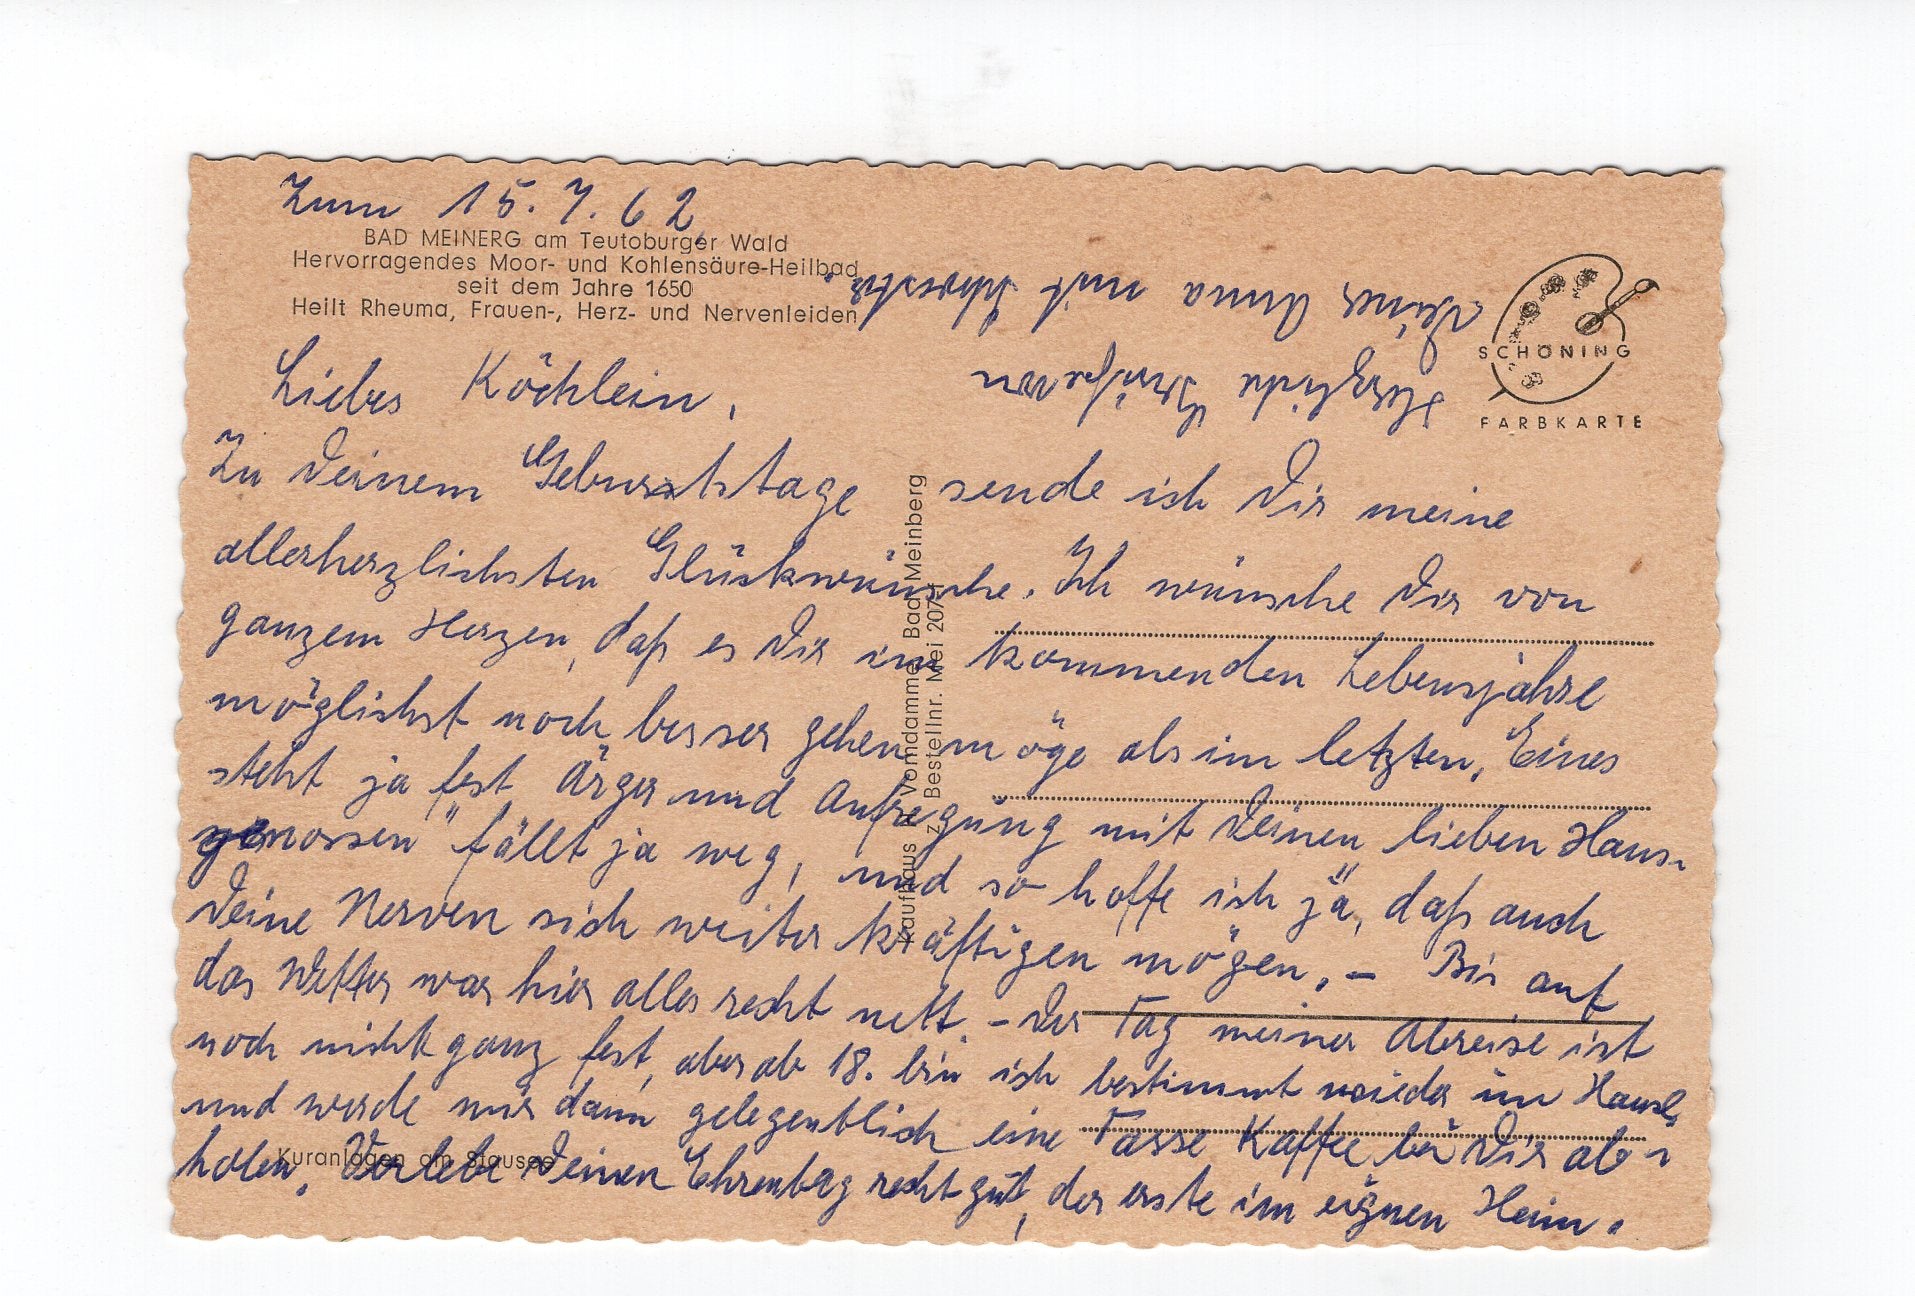 Zum 15.7.62
BAD MEINERG am Teutoburger Wald
Hervorragendes Moor- und Kohlensäure-Heilbad
seit dem Jahre 1650
Heilt Rheuma, Frauen-, Herz- und Nervenleiden
SCHÖNING
FARBKARTE
Liebes Köchlein,
Zu Deinem Geburtstage sende ich Dir meine
allerherzlichsten Glückwünsche. Ich wünsche Dir von
ganzem Herzen, daß es Dir im kommenden Lebensjahre
möglichst noch besser gehen möge als im letzten. Eines
steht ja fest Ärger und Aufregung mit Deinen lieben Haus-
genossen" fällt ja weg, und so hoffe ich ja, daß auch
Deine Nerven sich weiter kräftigen mögen. – Bis auf
das Wetter war hier alles recht nett. – Der Tag meiner Abreise ist
noch nicht ganz fest, aber ab 18. bin ich bestimmt wieder im Hause,
und werde mir dann gelegentlich eine Tasse Kaffee bei Dir ab-
holen. Verlebe Deinen Ehrentag recht gut, der erste im eignen Heim.
Herzliche Grüße von
Deiner Anna mit Schwester.
Kaufhaus H. Vomdamme, Bad Meinberg
z Bestellnr. Mei 207
Kuranlagen am Stausee